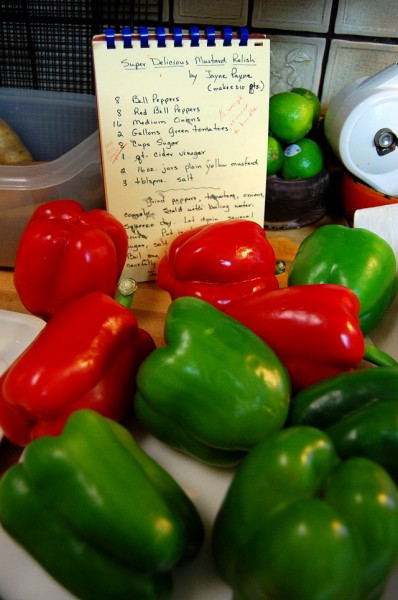 Super Delicious Mustard Relish
by Jayne Payne
(makes 10 pts)
8 Bell Peppers
8 Red Bell Peppers
16 Medium Onions
2 Gallons Green tomatoes
8 Cups Sugar
qt. Cider vinegar
2 16oz. jars plain yellow mustard
3 tblspns. salt
Grind peppers, tomatoes, onions,
Scald with boiling water.
Squeeze dry. Let drain several
Put
sugar, salt
Boil